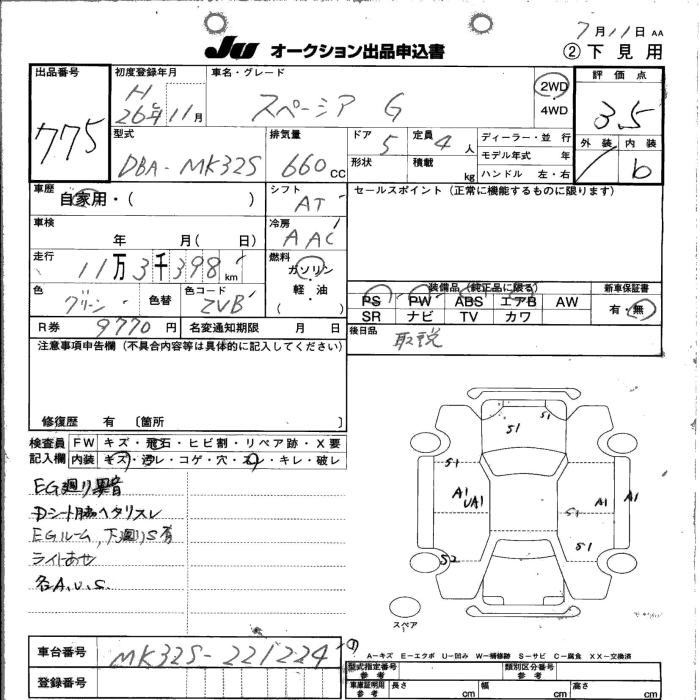 7月11日 AA
JU オークション出品申込書 ② 下見用
出品番号 775
初度登録年月 H 26年11月
車名・グレード スペーシア G
2WD
4WD
評価点 3.5
外装 内装 b
型式 DBA-MK32S
排気量 660 cc
ドア 5
定員 4 人
形状
積載 kg
ディーラー・並行
モデル年式 年
ハンドル 左・右
車歴 自家用・( )
シフト AT
セールスポイント(正常に機能するものに限ります)
車検 年 月( 日)
冷房 AAC
走行 11万3千398 km
燃料 ガソリン・軽油
( )
色 グリーン 色替 色コード ZVB
装備品(純正品に限る) 新車保証書
PS PW ABS エアB AW 有・無
SR ナビ TV カワ
R券 9770円 名変通知期限 月 日
後日品 取説
注意事項申告欄(不具合内容等は具体的に記入してください)
修復歴 有 〔箇所 〕
検査員記入欄
FW キズ・飛石・ヒビ割・リペア跡・X要
内装 キズ・汚レ・コゲ・穴・スレ・キレ・破レ
EG廻リ異音
Dシート脇ヘタリスレ
EGルーム,下廻リS有
ライトあせ
各A.U.S.
S1 S1
S1
S1
A1
UA1
A1
A1
S1
S1
S2
スペア
A-キズ E-エクボ U-凹み W-補修跡 S-サビ C-腐食 XX-交換済
車台番号 MK32S-221224
登録番号
型式指定番号 参考
類別区分番号 参考
車庫証明用 参考 長さ cm 幅 cm 高さ cm